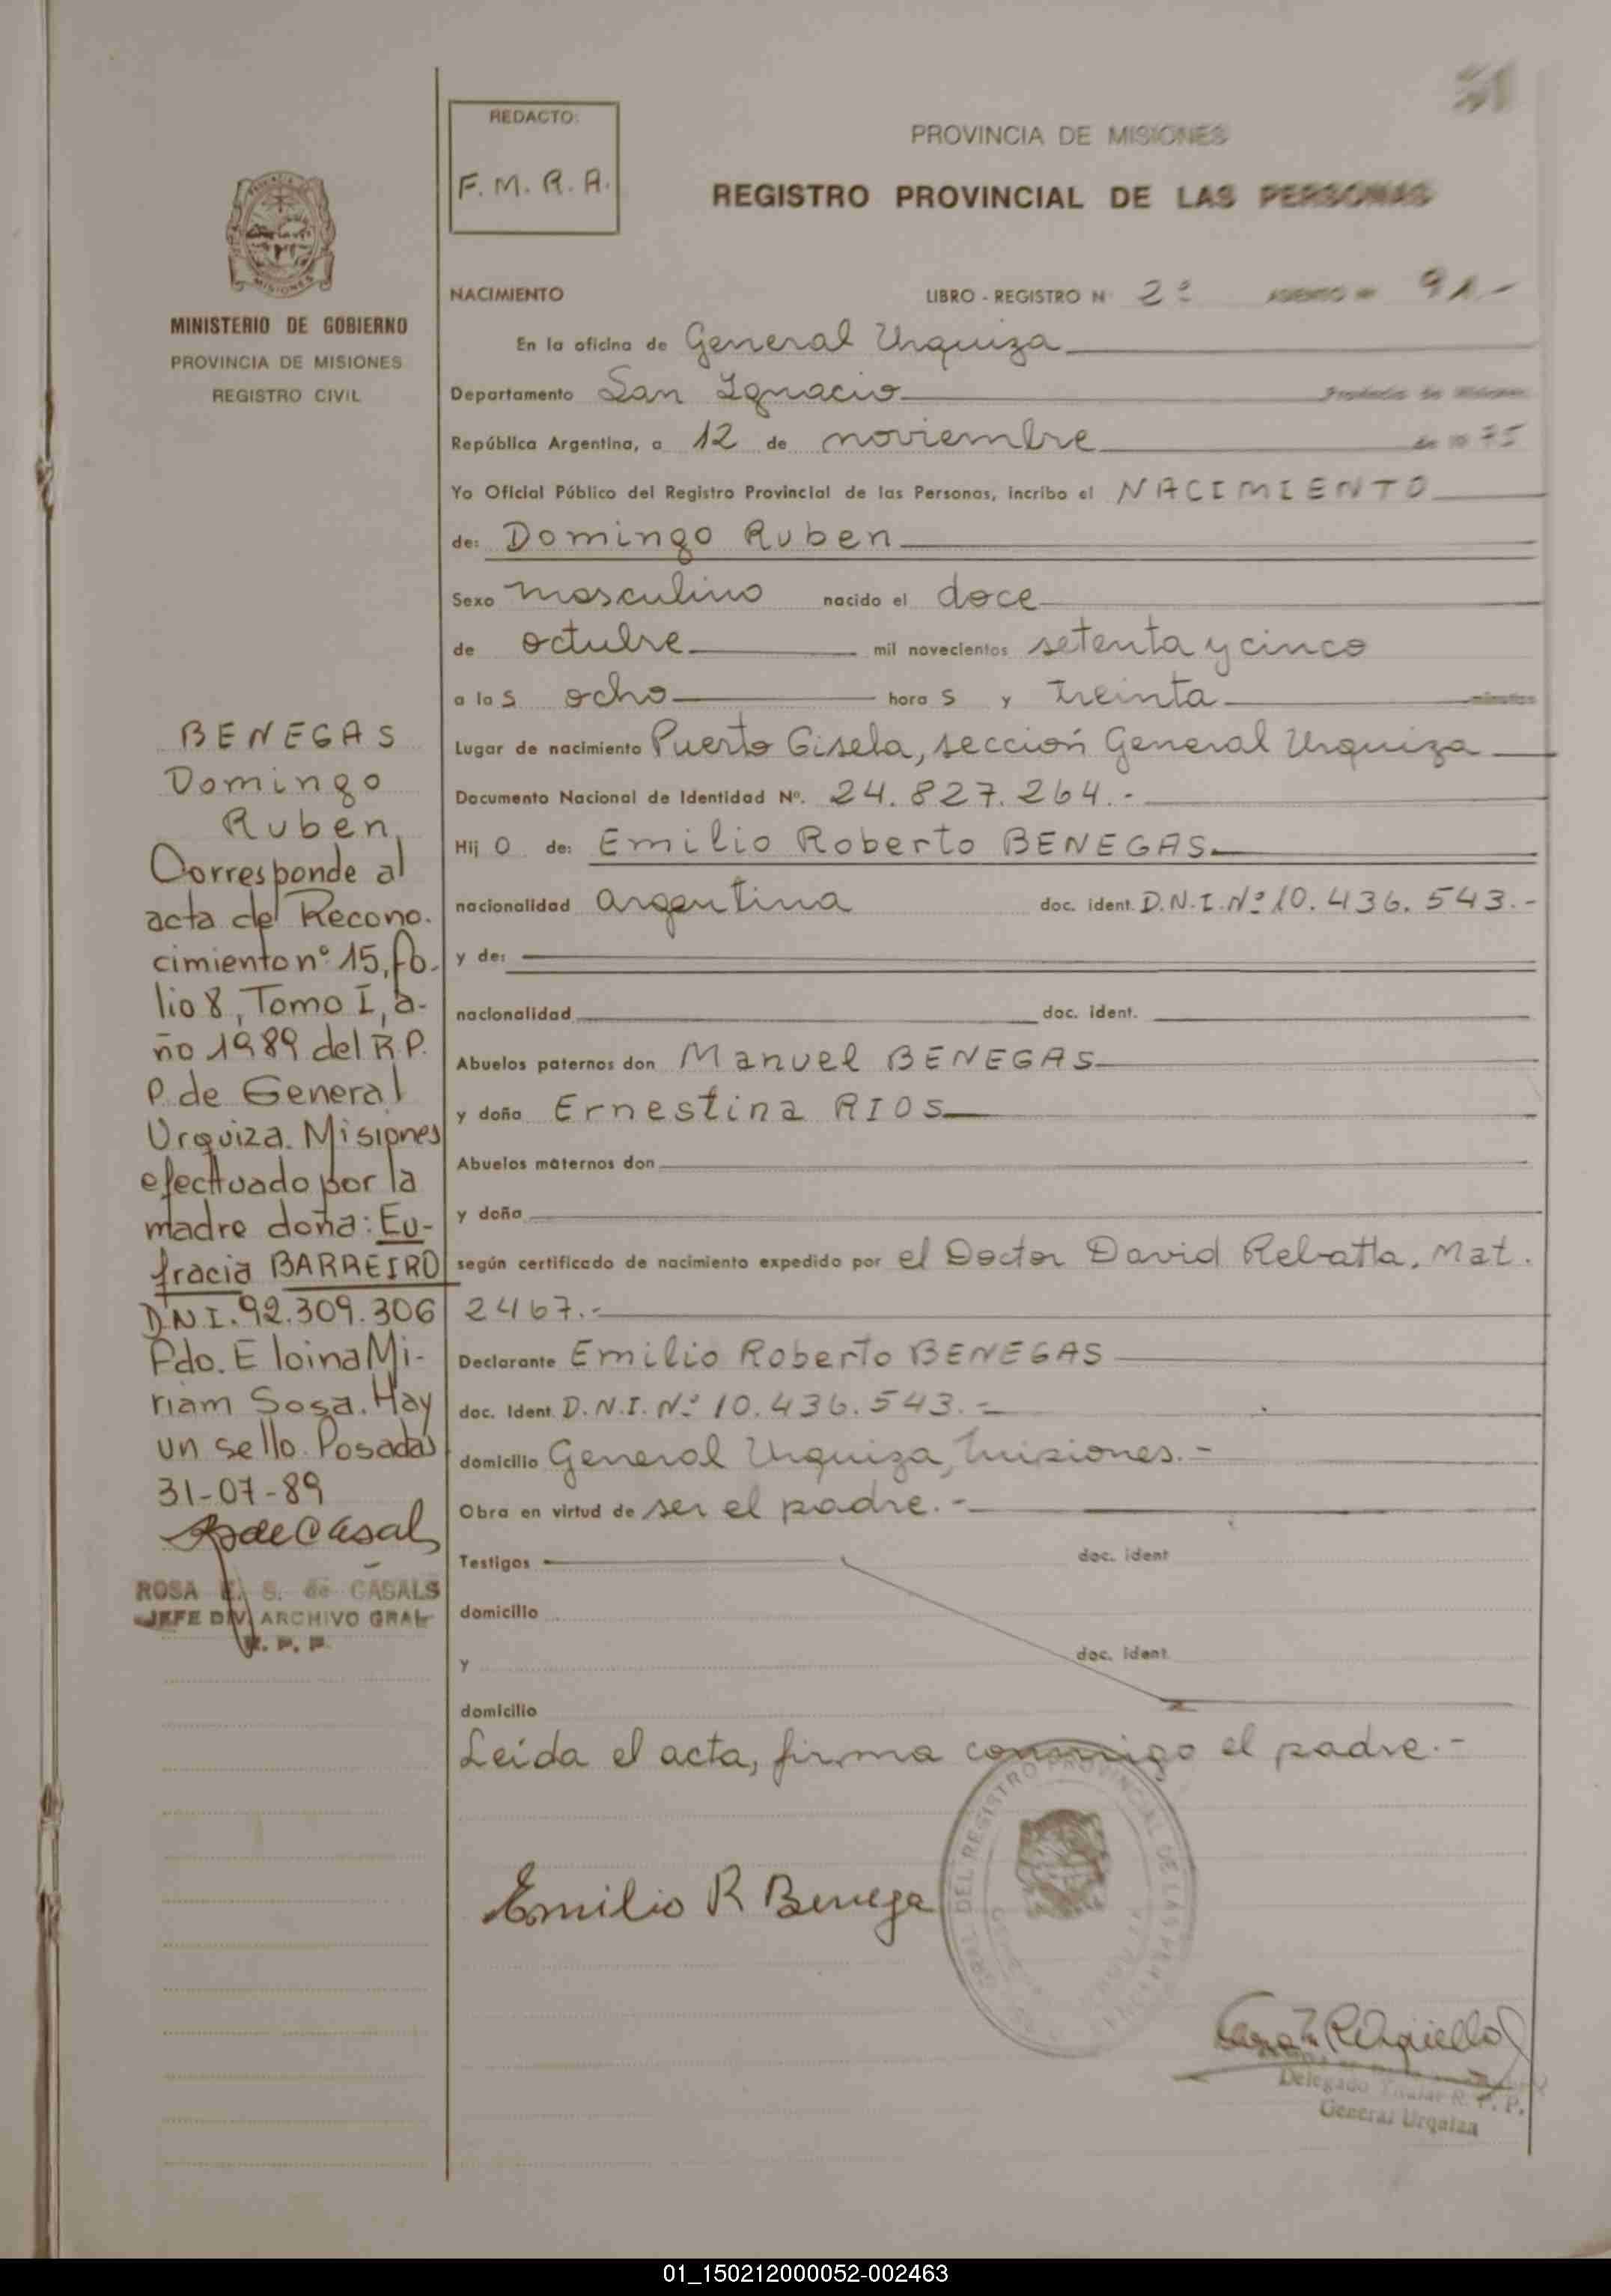 REDACTO:
F. M. R. A.
PROVINCIA DE MISIONES
REGISTRO PROVINCIAL DE LAS PERSONAS
MISIONES
MINISTERIO DE GOBIERNO
PROVINCIA DE MISIONES
REGISTRO CIVIL
NACIMIENTO LIBRO - REGISTRO N 2º ASIENTO Nº 91.-
En la oficina de General Urquiza
Departamento San Ignacio Provincia de Misiones
República Argentina, a 12 de noviembre de 19 75
Yo Oficial Público del Registro Provincial de las Personas, incribo el NACIMIENTO
de: Domingo Ruben
Sexo masculino nacido el doce
de octubre mil novecientos setenta y cinco
a las ocho horas y treinta minutos
Lugar de nacimiento Puerto Gisela, sección General Urquiza
Documento Nacional de Identidad Nº. 24.827.264.-
Hij o de: Emilio Roberto BENEGAS
nacionalidad argentina doc. ident. D.N.I. Nº 10.436.543.-
y de:
nacionalidad doc. ident.
Abuelos paternos don Manuel BENEGAS
y doña Ernestina RIOS
Abuelos maternos don
y doña
según certificado de nacimiento expedido por el Doctor David Rebatta, Mat.
2467.-
Declarante Emilio Roberto BENEGAS
doc. Ident. D.N.I. Nº 10.436.543.-
domicilio General Urquiza, Misiones.-
Obra en virtud de ser el padre.-
Testigos doc. ident
domicilio
y doc. ident
domicilio
Leída el acta, firma conmigo el padre.-
Emilio R Benega
DEL REGISTRO PROVINCIAL DE LAS
Delegado Titular R. P. P.
General Urquiza
BENEGAS
Domingo
Ruben,
Corresponde al
acta de Recono-
cimiento nº 15, fo-
lio 8, Tomo I, a-
ño 1989 del R.P.
P. de General
Urquiza. Misiones
efectuado por la
madre doña: Eu-
fracia BARREIRO
D.N.I. 92.309.306
Fdo. Eloina Mi-
riam Sosa. Hay
un sello. Posadas
31-07-89
R de Casals
ROSA E. S. de CASALS
JEFE DIV. ARCHIVO GRAL
R. P. P.
01_150212000052-002463